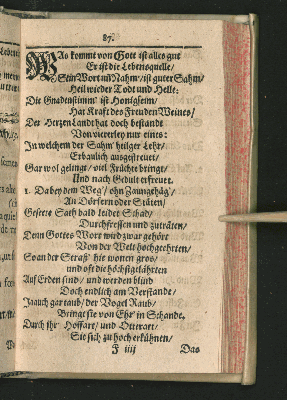 87.
WAs kommt von Gott ist alles gut
Er ist die Lebensquelle/
Sein Wort und Nahm/ ist guter Sahm/
Heil wieder Todt und Helle:
Die Gnadenstimm' ist Honigseim/
Hat Krafft des Freuden Weines/
Der Hertzen Land hat doch bestandt
Von viererley nur eines:
In welchem der Sahm' heilger Lehr/
Erbaulich ausgestreuet/
Gar wol gelingt/ viel Früchte bringt/
Und nach Gedult erfreuet.
1. Da bey dem Weg'/ ohn Zaungehäg/
An Dörfern oder Stäten/
Gesette Sath bald leidet Schad/
Durchfressen und zuträten/
Denn Gottes Wort wird zwar gehört
Von der Welt hochgeehrten/
So an der Straß' hie wonen gros/
und oft die höchstgelährten
Auf Erden sind/ und werden blind
Doch endlich am Verstande/
Ja auch gar taub/ der Vogel Raub/
Bringt sie von Ehr' in Schande.
Durch ihr' Hoffart/ und Otterart/
Sie sich zu hoch erkühnen/
F iiij Das